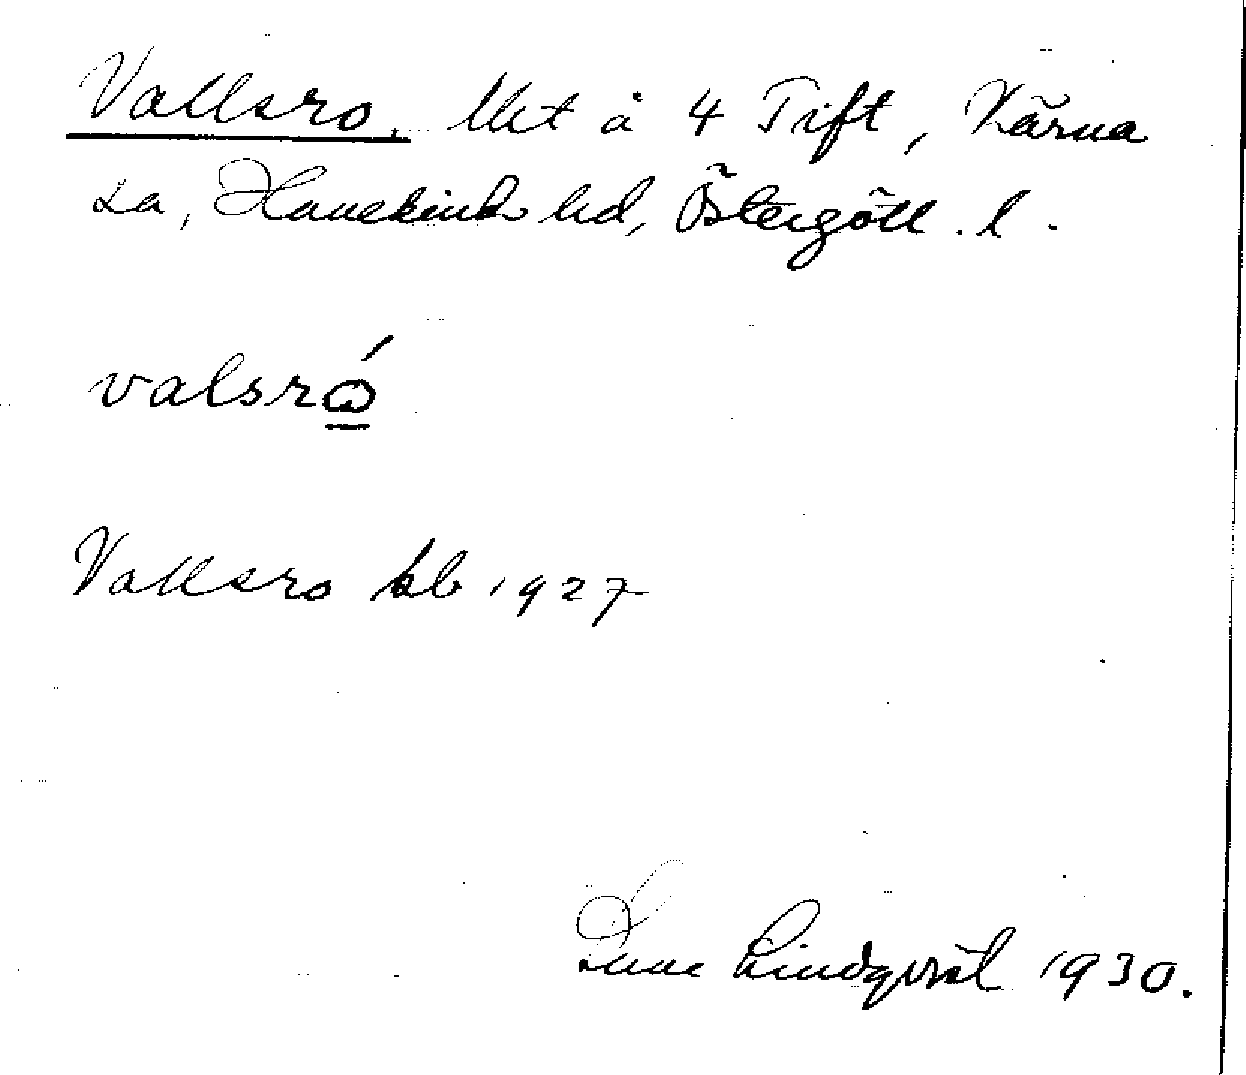 Vallsro. Utet å 4 Tift, Kärna
sa, Hanekinds hd, Östergötl. l.
valsró
Vallsro kb 1927
Sune Lindqvist 1930.